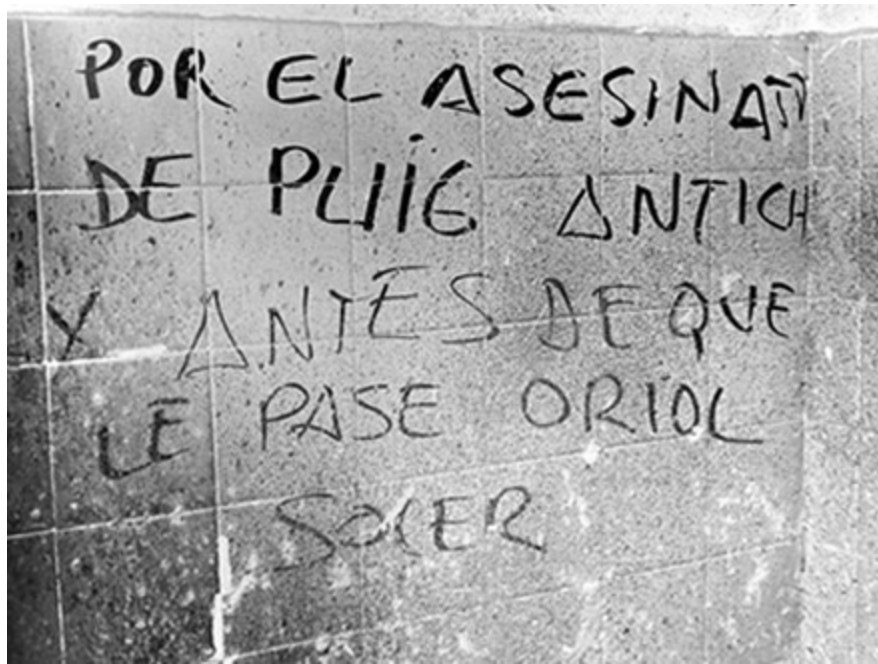 POR EL ASESINATO
DE PUIG ANTICH
Y ANTES DE QUE
LE PASE ORIOL
SOCER